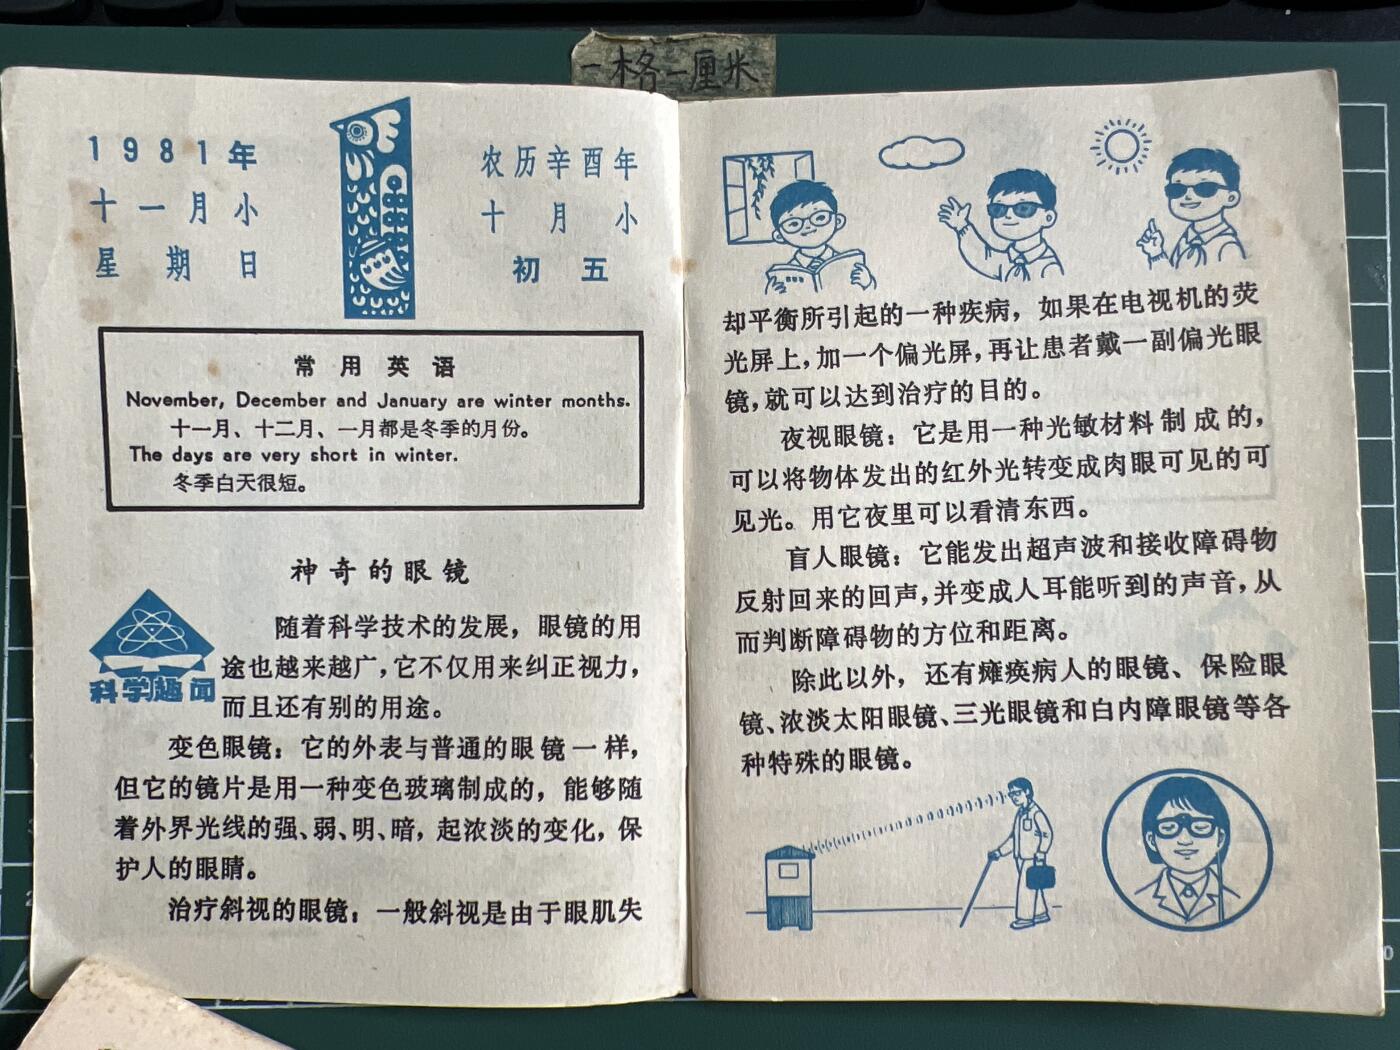 一格一厘米
1981年
十一月小
星期日
1
农历辛酉年
十月小
初五
常用英语
November, December and January are winter months.
十一月、十二月、一月都是冬季的月份。
The days are very short in winter.
冬季白天很短。
神奇的眼镜
科学趣闻
随着科学技术的发展，眼镜的用
途也越来越广，它不仅用来纠正视力，
而且还有别的用途。
变色眼镜：它的外表与普通的眼镜一样，
但它的镜片是用一种变色玻璃制成的，能够随
着外界光线的强、弱、明、暗，起浓淡的变化，保
护人的眼睛。
治疗斜视的眼镜：一般斜视是由于眼肌失
却平衡所引起的一种疾病，如果在电视机的荧
光屏上，加一个偏光屏，再让患者戴一副偏光眼
镜，就可以达到治疗的目的。
夜视眼镜：它是用一种光敏材料制成的，
可以将物体发出的红外光转变成肉眼可见的可
见光。用它夜里可以看清东西。
盲人眼镜：它能发出超声波和接收障碍物
反射回来的回声，并变成人耳能听到的声音，从
而判断障碍物的方位和距离。
除此以外，还有瘫痪病人的眼镜、保险眼
镜、浓淡太阳眼镜、三光眼镜和白内障眼镜等各
种特殊的眼镜。